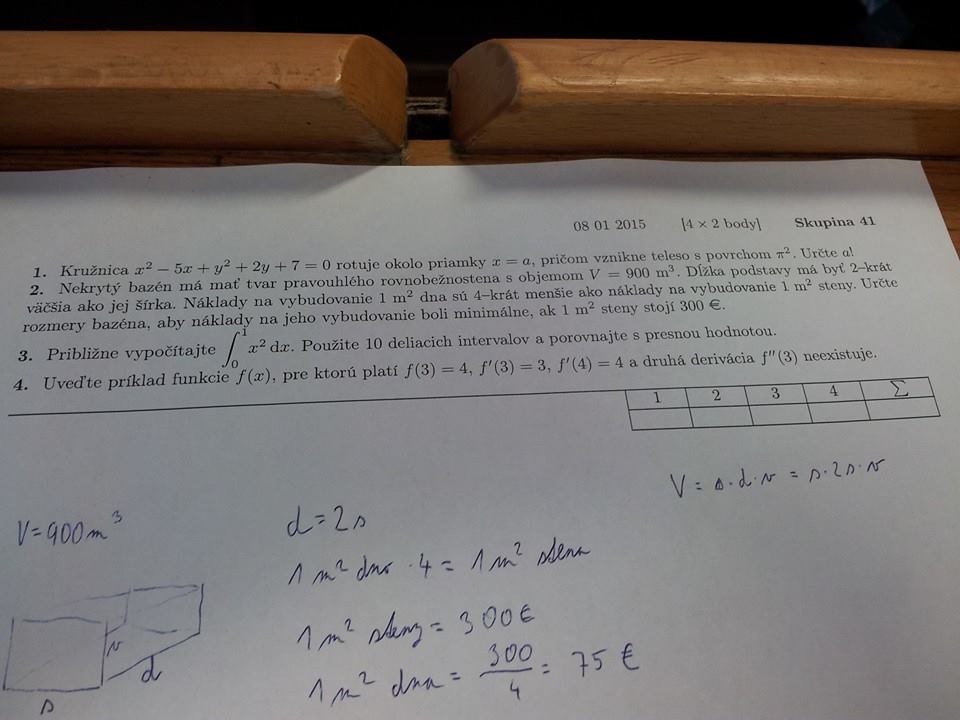 08 01 2015 [4 × 2 body] Skupina 41
1. Kružnica x² − 5x + y² + 2y + 7 = 0 rotuje okolo priamky x = a, pričom vznikne teleso s povrchom π². Určte a!
2. Nekrytý bazén má mať tvar pravouhlého rovnobežnostena s objemom V = 900 m³. Dĺžka podstavy má byť 2–krát
väčšia ako jej šírka. Náklady na vybudovanie 1 m² dna sú 4–krát menšie ako náklady na vybudovanie 1 m² steny. Určte
rozmery bazéna, aby náklady na jeho vybudovanie boli minimálne, ak 1 m² steny stojí 300 €.
3. Približne vypočítajte ∫₀¹ x² dx. Použite 10 deliacich intervalov a porovnajte s presnou hodnotou.
4. Uveďte príklad funkcie f(x), pre ktorú platí f(3) = 4, f′(3) = 3, f′(4) = 4 a druhá derivácia f″(3) neexistuje.
1 2 3 4 Σ
V = s·d·v = s·2s·v
V = 900 m³
d = 2s
1 m² dno · 4 = 1 m² stena
1 m² steny = 300 €
1 m² dna = 300/4 = 75 €
v
d
s